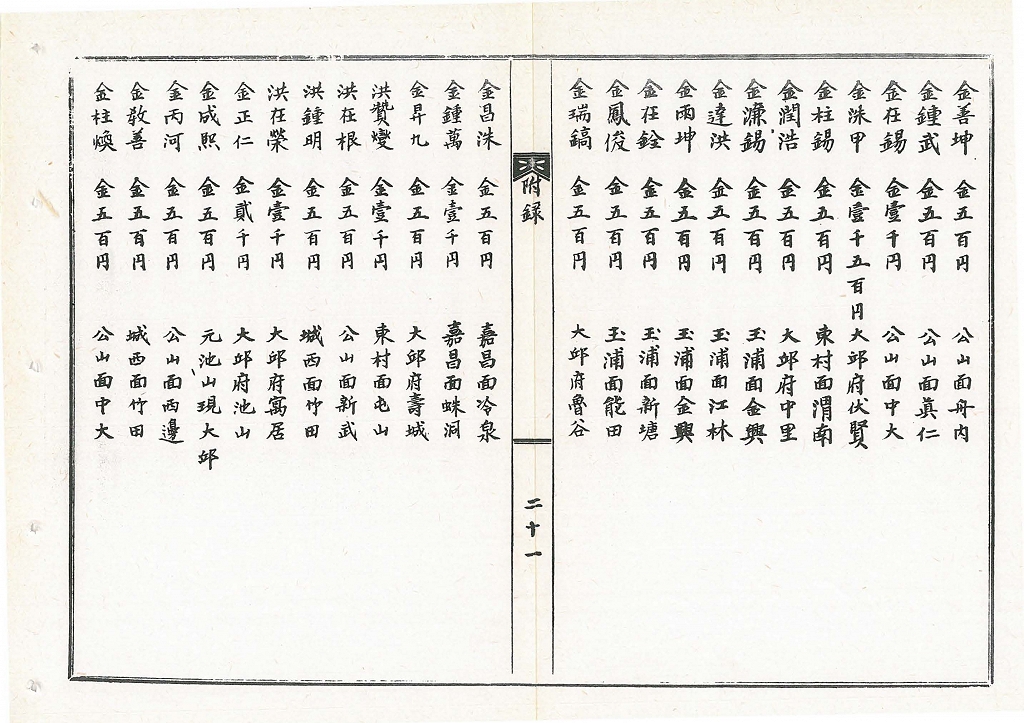 金善坤 金五百円 公山面舟內
金鍾武 金五百円 公山面眞仁
金在錫 金壹千円 公山面中大
金洙甲 金壹千五百円 大邱府伏賢
金柱錫 金五百円 東村面渭南
金潤浩 金五百円 大邱府中里
金濂錫 金五百円 玉浦面金興
金達洪 金五百円 玉浦面江林
金雨坤 金五百円 玉浦面金興
金在銓 金五百円 玉浦面新塘
金鳳俊 金五百円 玉浦面能田
金瑞鎬 金五百円 大邱府魯谷
附録
二十一
金昌洙 金五百円 嘉昌面冷泉
金鍾萬 金壹千円 嘉昌面蛛洞
金昇九 金五百円 大邱府壽城
洪贊燮 金壹千円 東村面屯山
洪在根 金五百円 公山面新武
洪鍾明 金五百円 城西面竹田
洪在榮 金壹千円 大邱府寓居
金正仁 金貳千円 大邱府池山
金成熙 金五百円 元池山現大邱
金丙河 金五百円 公山面西邊
金敎善 金五百円 城西面竹田
金柱煥 金五百円 公山面中大